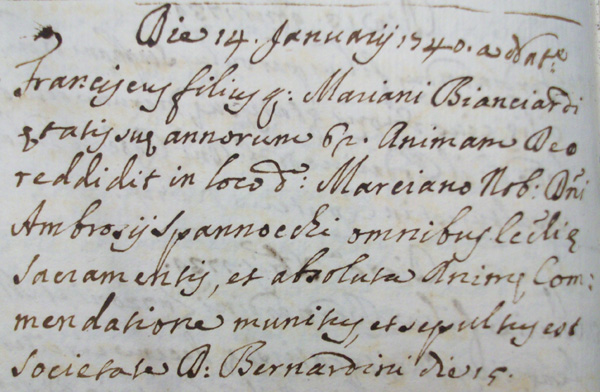 Die 14. Januarij 1740. a Natẽ
Franciscus filius q: Mariani Bianciardi
ętatis suę annorum 62. Animam Deo
reddidit in loco d: Marciano Nob: Dñi
Ambrosij Spannocchi omnibus Ecclię
sacramentis, et absoluta Animę Com:
mendatione munitus, et sepultus est
societate D: Bernardini die 15.